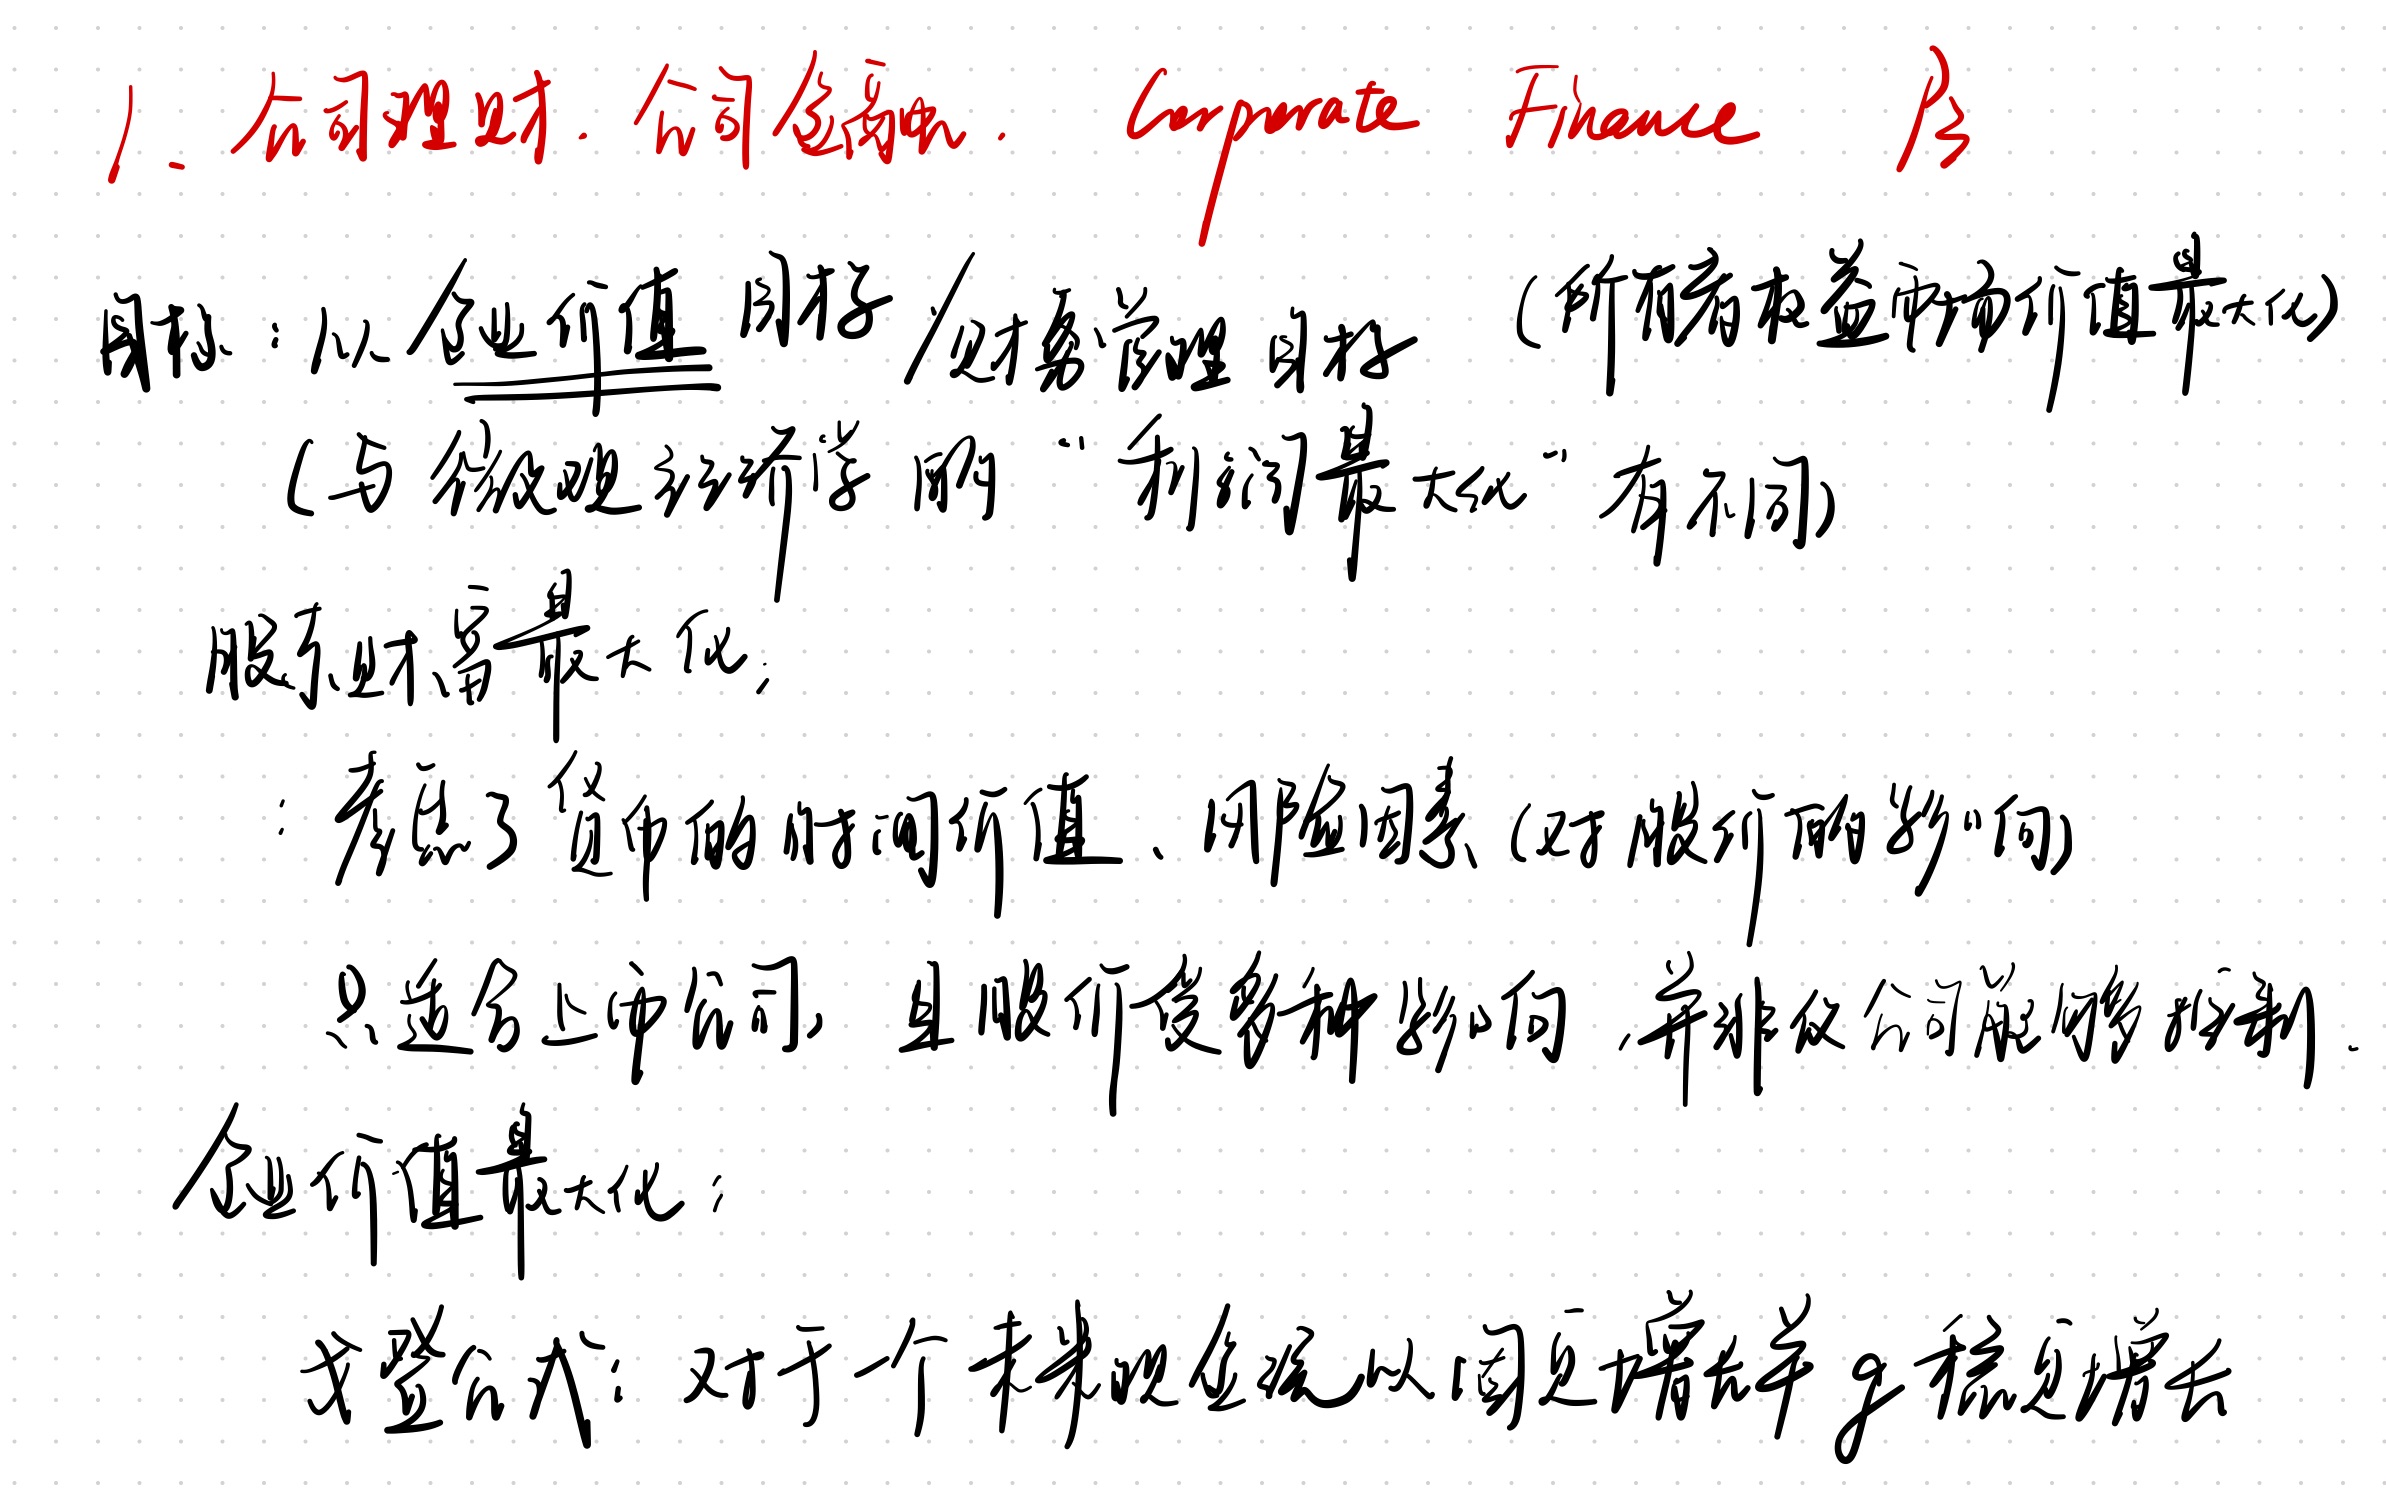 1. 公司理财. 公司金融. Corporate Finance
目标：以企业价值目标 为财务管理目标 (所有者权益市场价值最大化)
(与微观经济学的“利润最大化”有不同)
股东财富最大化：
：考虑了货币的时间价值、风险因素 (对股价的影响)
只适合上市公司，且股价受多种影响，并非仅公司能够控制.
企业价值最大化：
戈登公式：对于一个未来收益流以固定增长率g稳定增长